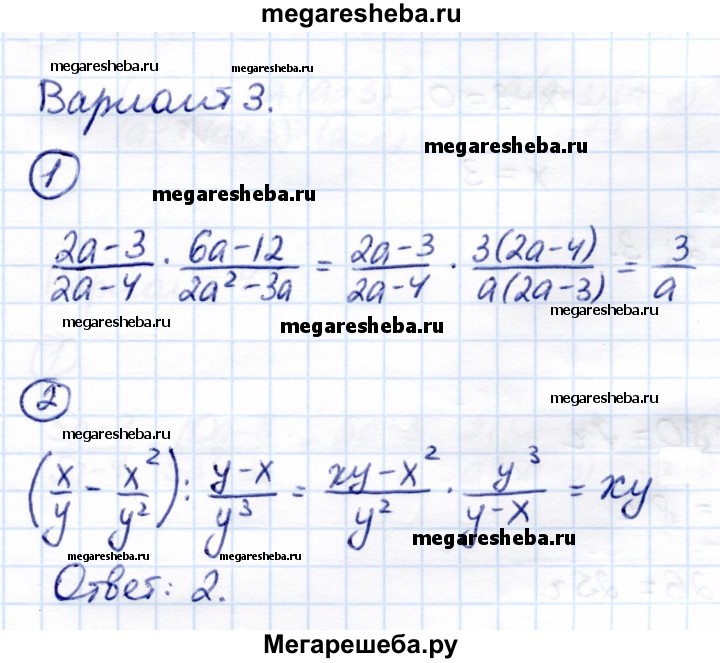 megaresheba.ru
megaresheba.ru megaresheba.ru
Вариант 3.
megaresheba.ru
1
megaresheba.ru
(2a-3)/(2a-4) · (6a-12)/(2a²-3a) = (2a-3)/(2a-4) · 3(2a-4)/(a(2a-3)) = 3/a
megaresheba.ru megaresheba.ru megaresheba.ru
2
megaresheba.ru
megaresheba.ru
(x/y - x²/y²) : (y-x)/y³ = (xy-x²)/y² · y³/(y-x) = xy
megaresheba.ru
megaresheba.ru megaresheba.ru
Ответ: 2.
Мегарешеба.ру